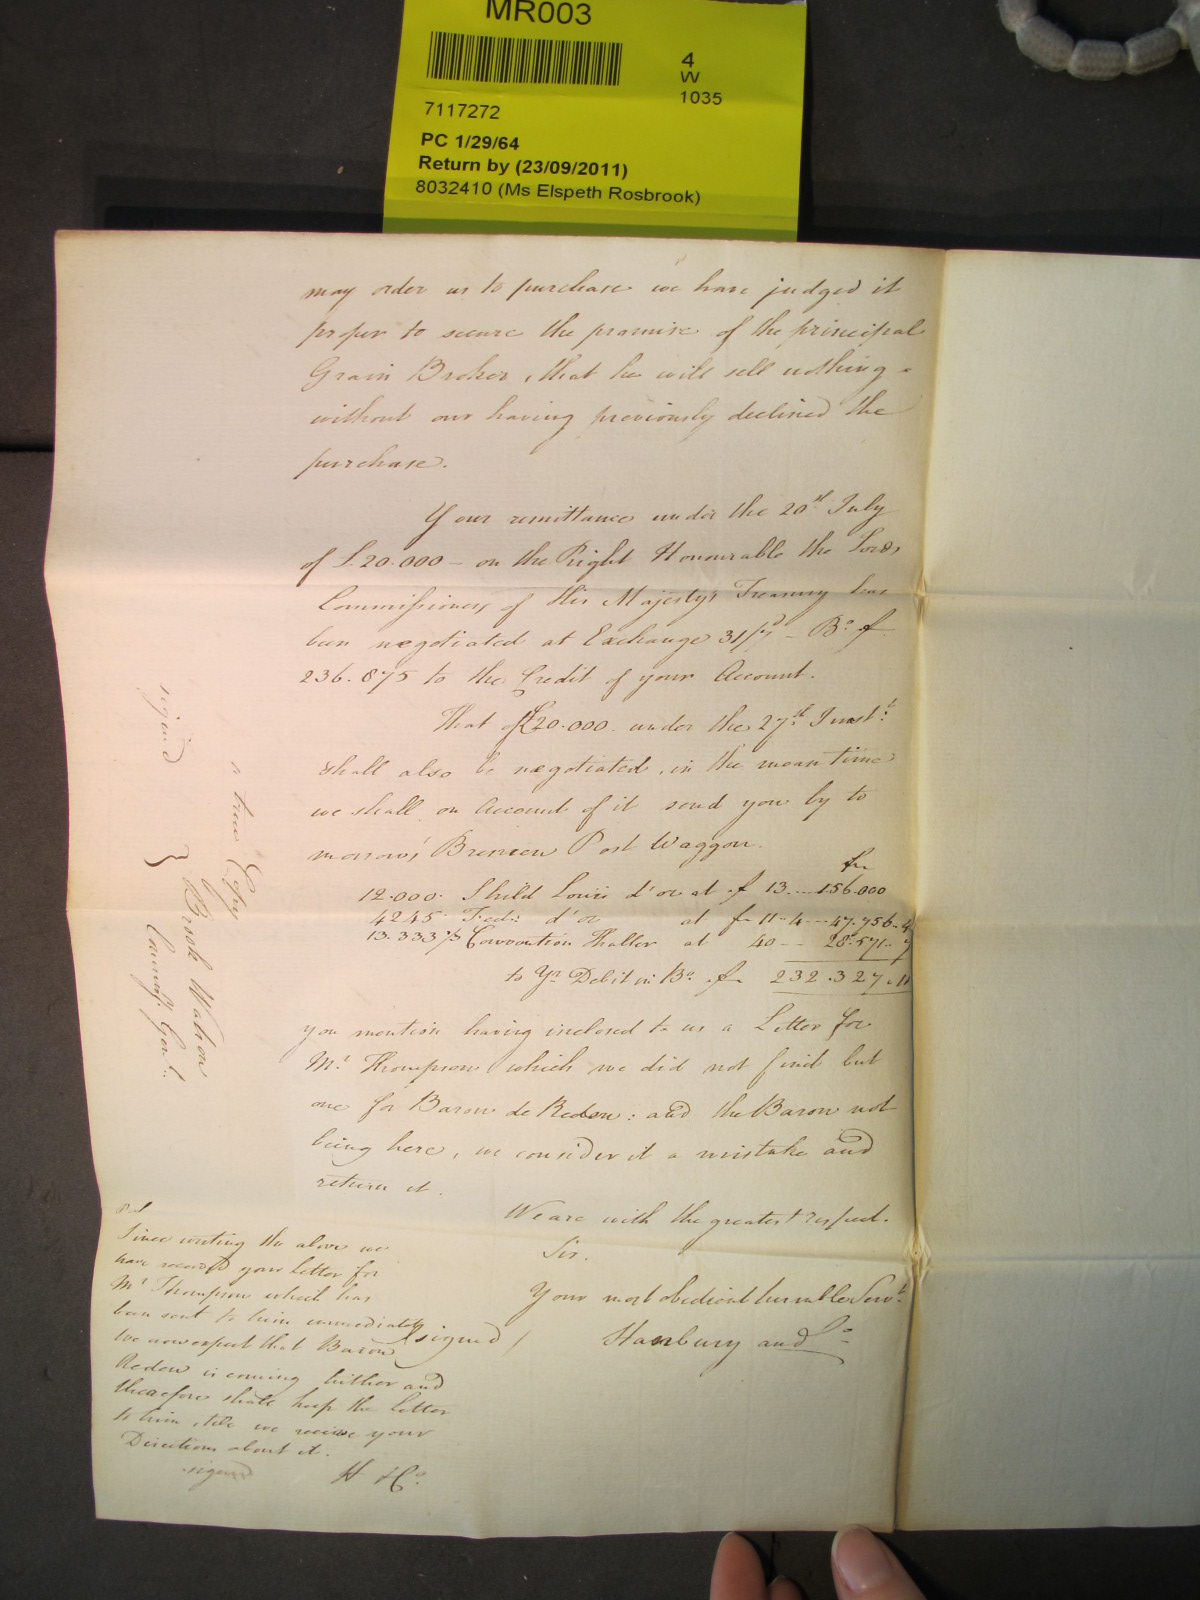 MR003
4
W
1035
7117272
PC 1/29/64
Return by (23/09/2011)
8032410 (Ms Elspeth Rosbrook)
may order us to purchase we have judged it
proper to secure the promise of the principal
Grain Broker, that he will sell nothing
without our having previously declined the
purchase.
Your remittance under the 20th July
of £20.000 – on the Right Honourable the Lords
Commissioners of His Majesty's Treasury has
been negotiated at Exchange 31/7d – Bo f
236.875 to the Credit of your Account.
That of £20.000 under the 27th Inst:t
shall also be negotiated, in the mean time
we shall on Account of it send you by to
morrows' Bremen Post Waggon.
12.000. Shild Louis d'or at f 13 .... 156.000
4245 Fred: d'or at f 11-4 --- 47.756-4
13.333⅓ Convention Thaller at 40 -- 28.571. 7
to Yr Debit in Bo. f 232.327.11
you mention having inclosed to us a Letter for
Mr Thompson which we did not find but
one for Baron de Reden: and the Baron not
being here, we consider it a mistake and
return it.
We are with the greatest respect.
Sir.
Your most obedient humble Servt
(signed) Hanbury and Co
Since writing the above we
have received your letter for
Mr Thompson which has
been sent to him immediately
We now expect that Baron
Reden is coming hither and
therefore shall keep the letter
to him till we receive your
Directions about it.
signed H & Co.
a true Copy
signed } Brook Watson
Commissy Genl.